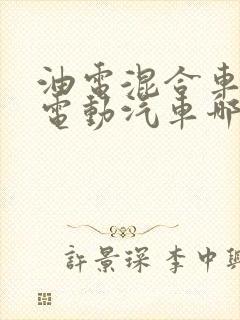 油電混合車
電動汽車哪
許景琛 李中興